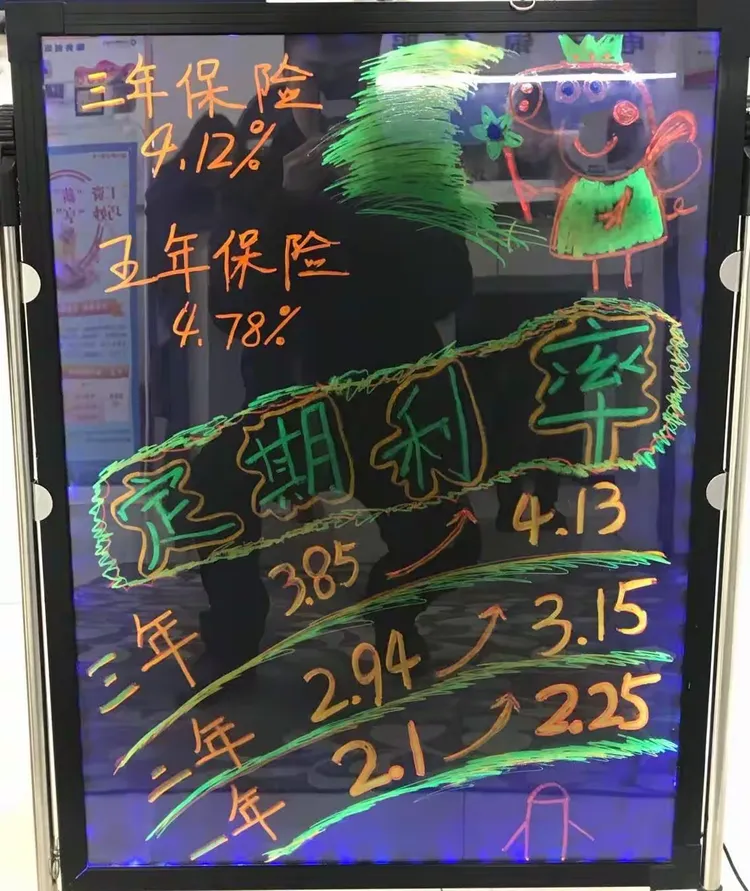 三年保险
4.12%
五年保险
4.78%
定期利率
三年 3.85 4.13
二年 2.94 3.15
一年 2.1 2.25